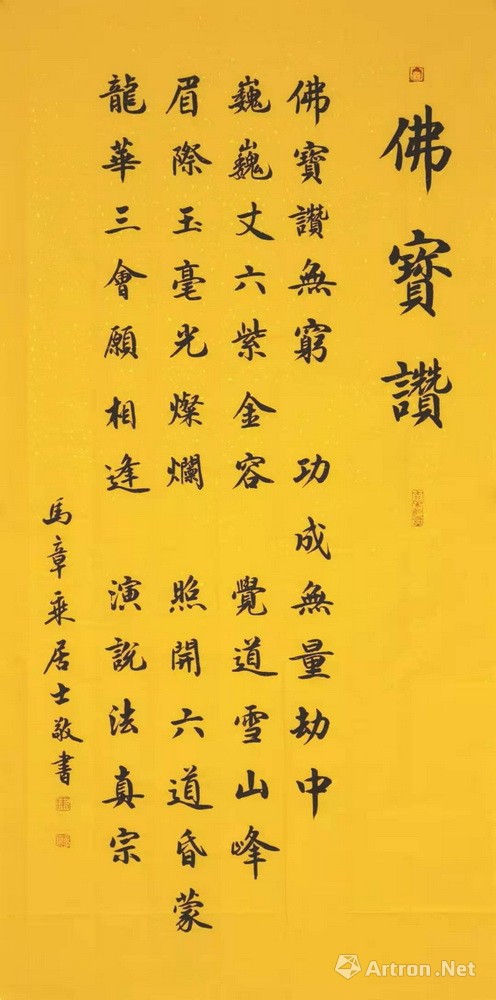 佛寶讚
佛寶讚無窮 功成無量劫中
巍巍丈六紫金容 覺道雪山峰
眉際玉毫光燦爛 照開六道昏蒙
龍華三會願相逢 演說法真宗
馬章乘居士敬書
Artron.Net